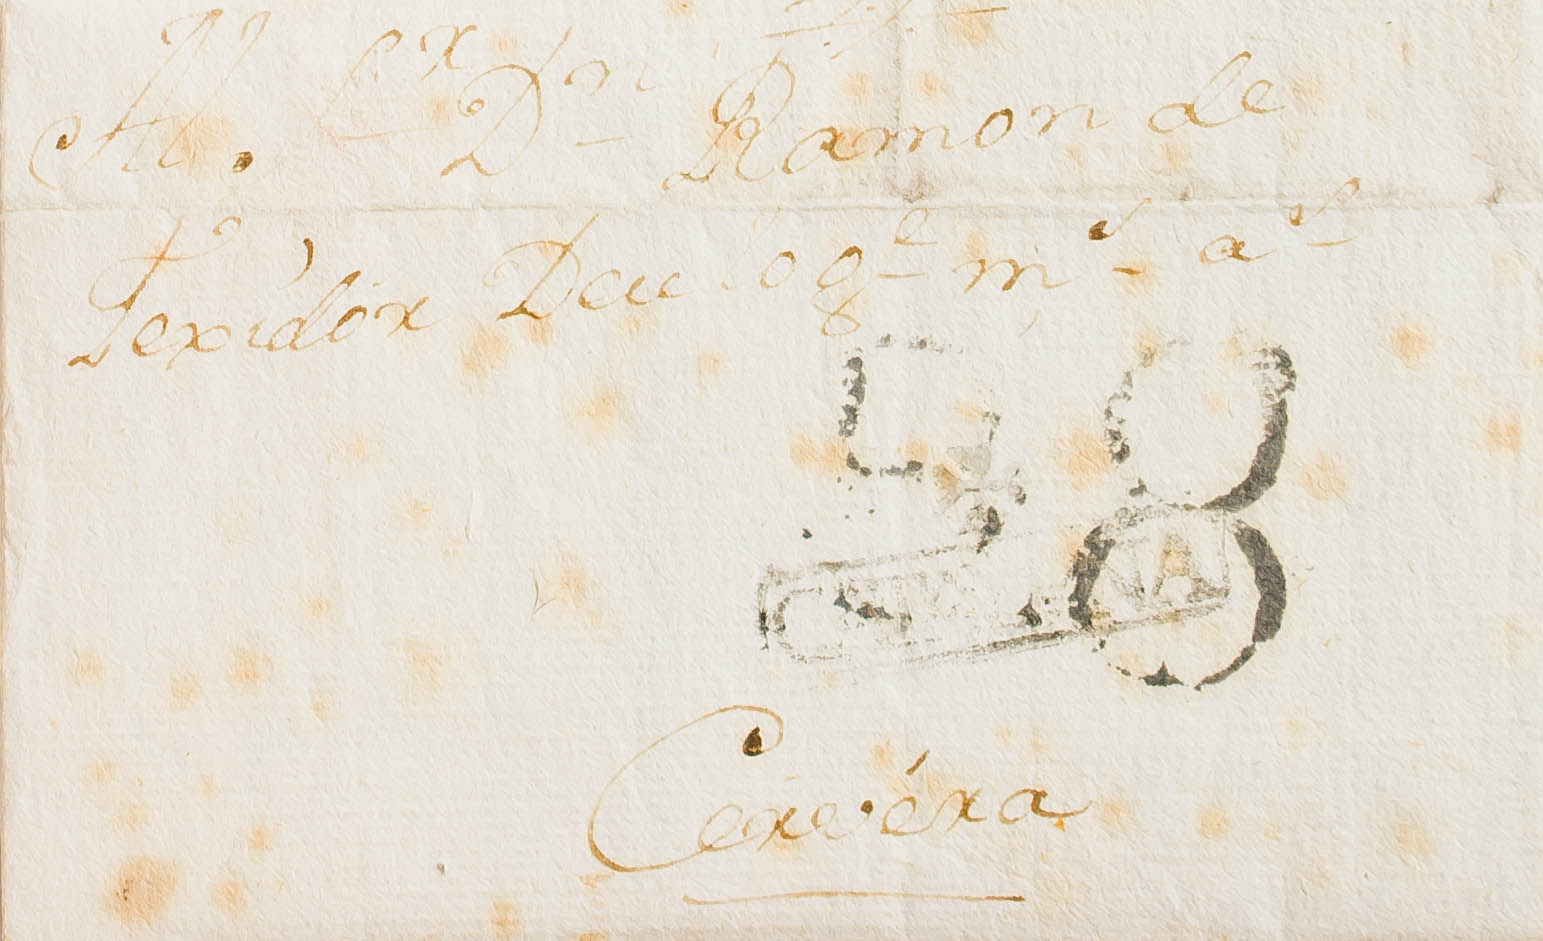 Al. Sr Dn Ramon de
Texidór Deu loge ms as
58
Cervéra